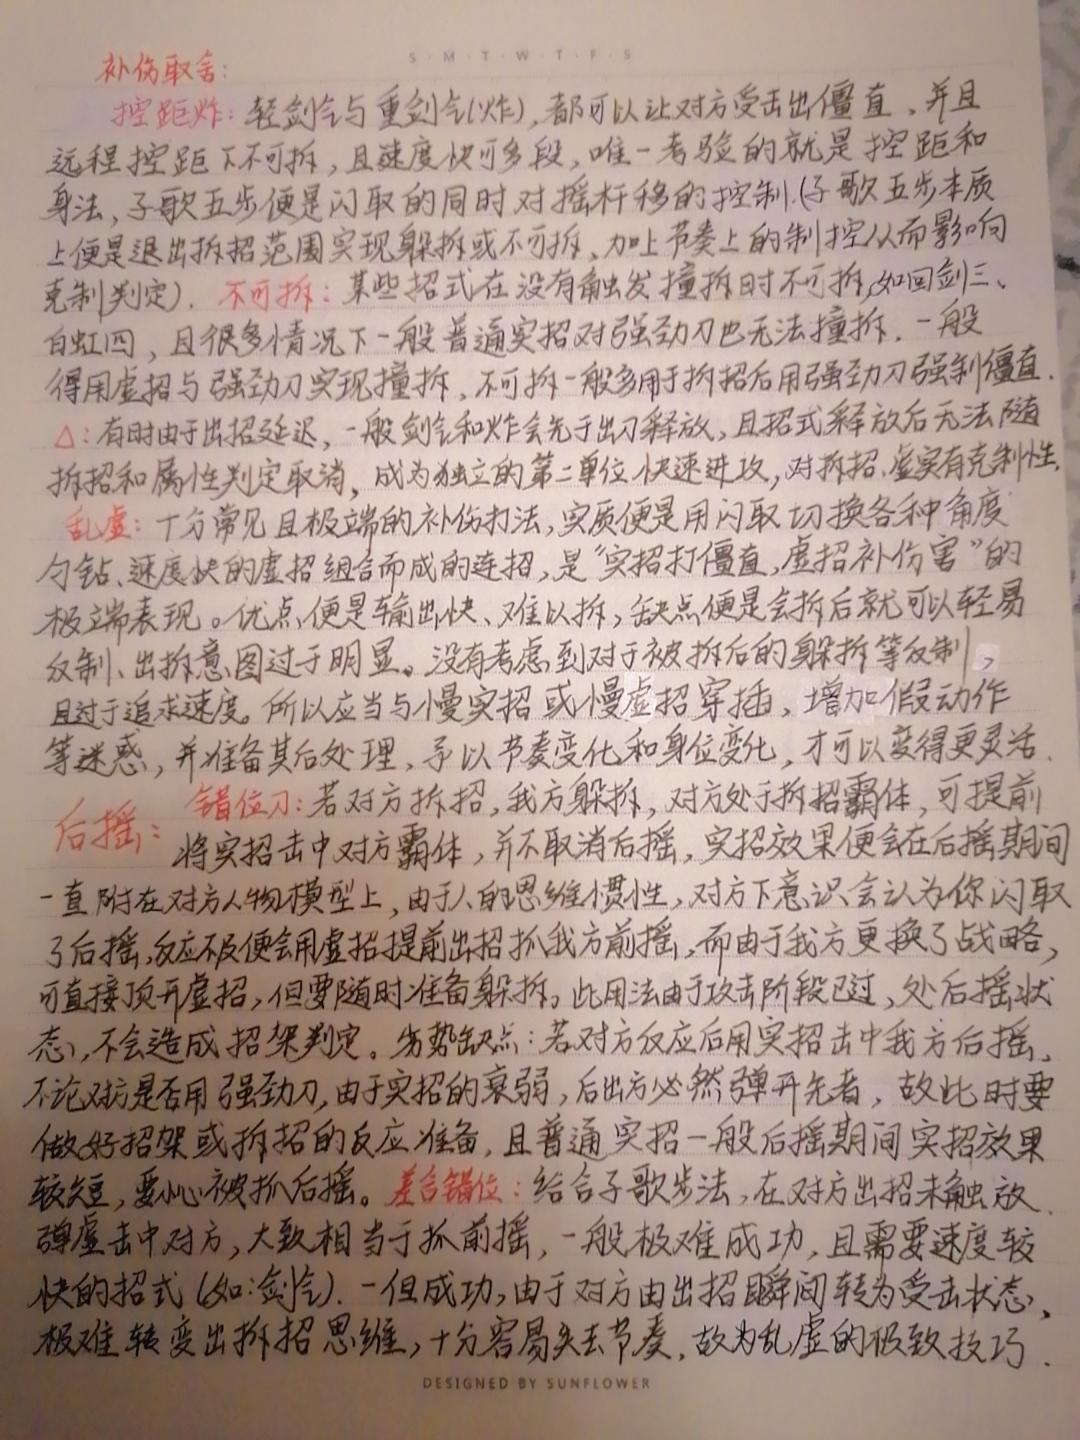 S·M·T·W·T·F·S
补伤取舍：
控距炸：轻剑气与重剑气(炸)，都可以让对方受击出僵直，并且
远程控距下不可拆，且速度快可多段，唯一考验的就是控距和
身法，子歌五步便是闪取的同时对摇杆移的控制.(子歌五步本质
上便是退出拆招范围实现躲拆或不可拆、加上节奏上的制控从而影响
克制判定)．不可拆：某些招式在没有触发撞拆时不可拆,如回剑三、
白虹四，且很多情况下一般普通实招对强劲刀也无法撞拆．一般
得用虚招与强劲刀实现撞拆，不可拆一般多用于拆招后用强劲刀强制僵直．
△：有时由于出招延迟，一般剑气和炸会先于出刀释放，且招式释放后无法随
拆招和属性判定取消，成为独立的第二单位快速进攻，对拆招、虚实有克制性．
乱虚：十分常见且极端的补伤打法，实质便是用闪取切换各种角度
勺钻、速度快的虚招组合而成的连招，是“实招打僵直，虚招补伤害”的
极端表现。优点便是输出快、难以拆，缺点便是会拆后就可以轻易
反制、出拆意图过于明显。没有考虑到对于被拆后的躲拆等反制，
且过于追求速度。所以应当与慢实招或慢虚招穿插，增加假动作
等迷惑，并准备其后处理，予以节奏变化和身位变化，才可以变得更灵活．
后摇：错位刀：若对方拆招，我方躲拆，对方处于拆招霸体，可提前
将实招击中对方霸体，并不取消后摇，实招效果便会在后摇期间
一直附在对方人物模型上，由于人的思维惯性，对方下意识会认为你闪取
了后摇，反应不及便会用虚招提前出招抓我方前摇，而由于我方更换了战略，
可直接顶开虚招，但要随时准备躲拆。此用法由于攻击阶段已过，处后摇状
态，不会造成招架判定。劣势缺点：若对方反应后用实招击中我方后摇、
不论对方是否用强劲刀，由于实招的衰弱，后出方必然弹开先者，故此时要
做好招架或拆招的反应准备，且普通实招一般后摇期间实招效果
较短，要小心被抓后摇。差合错位：给合子歌步法，在对方出招未触放
弹虚击中对方，大致相当于抓前摇，一般极难成功，且需要速度较
快的招式（如：剑气）．一但成功，由于对方由出招瞬间转为受击状态，
极难转变出拆招思维，十分容易失去节奏，故为乱虚的极致技巧．
DESIGNED BY SUNFLOWER